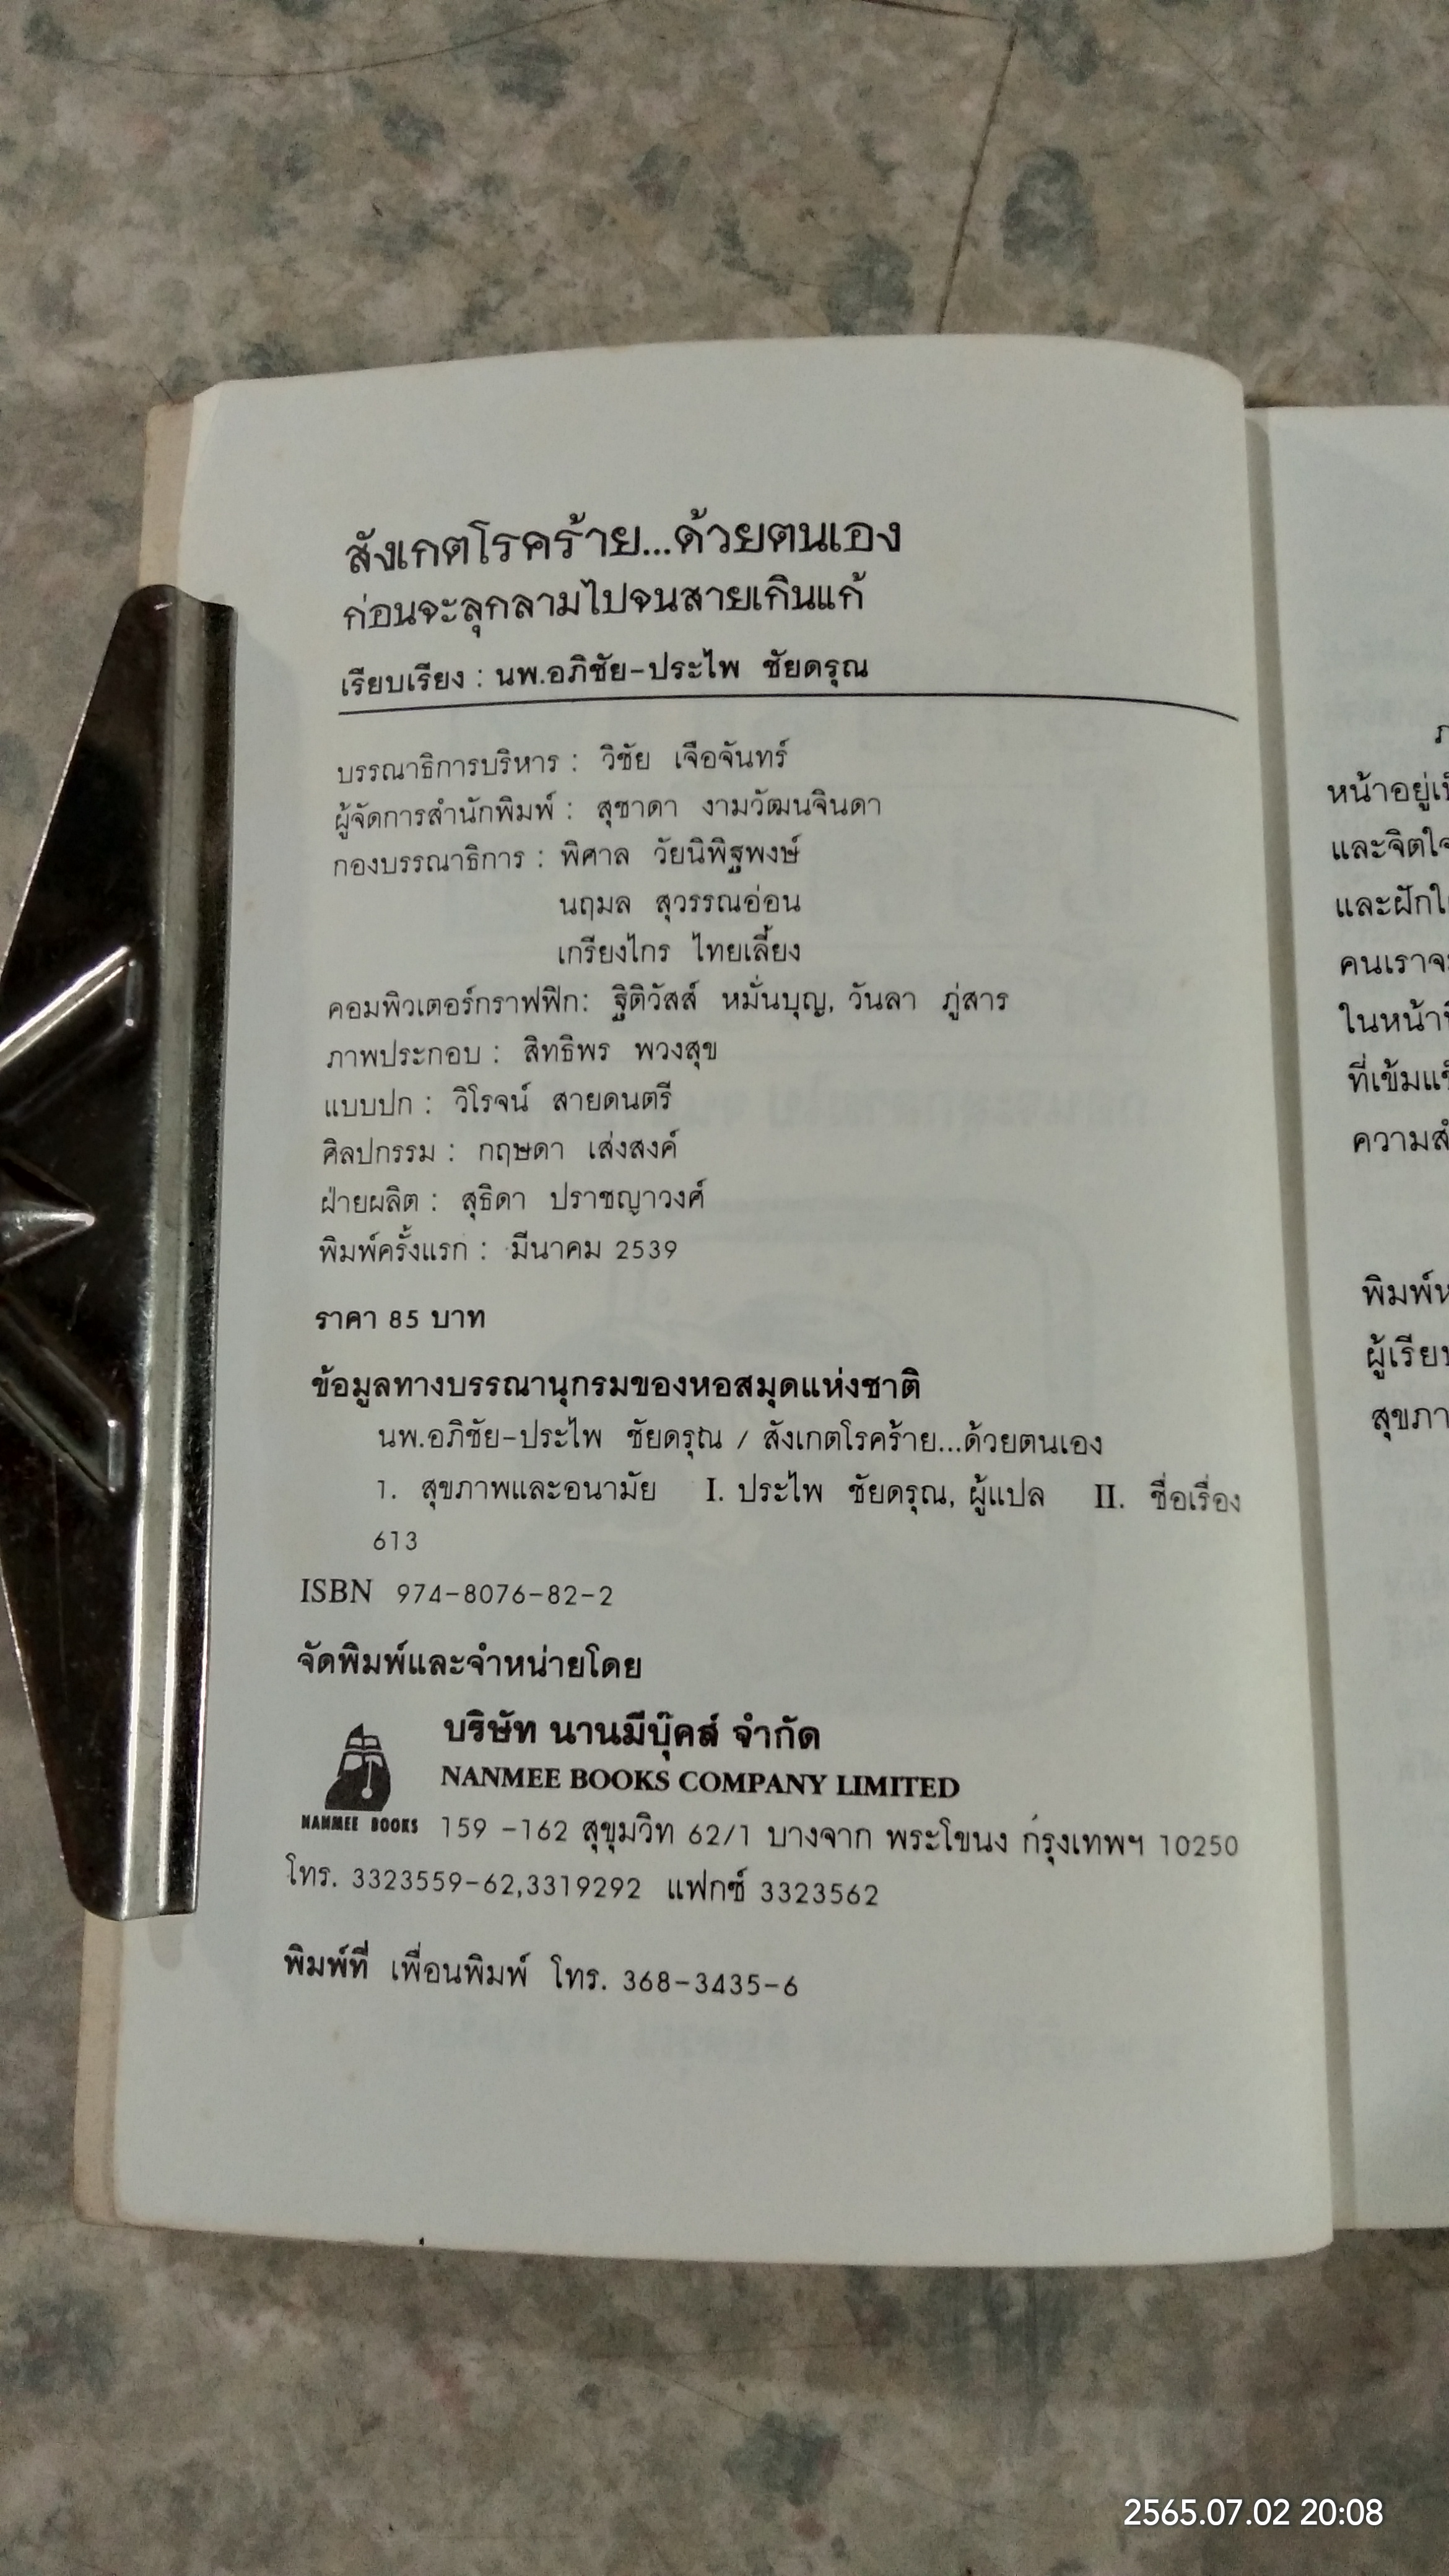 สังเกตโรคร้าย...ด้วยตนเอง
ก่อนจะลุกลามไปจนสายเกินแก้
เรียบเรียง : นพ.อภิชัย-ประไพ ชัยดรุณ
บรรณาธิการบริหาร : วิชัย เจือจันทร์
ผู้จัดการสำนักพิมพ์ : สุชาดา งามวัฒนจินดา
กองบรรณาธิการ : พิศาล วัยนิพิฐพงษ์
นฤมล สุวรรณอ่อน
เกรียงไกร ไทยเลี้ยง
คอมพิวเตอร์กราฟฟิก: ฐิติวัสส์ หมั่นบุญ, วันลา ภู่สาร
ภาพประกอบ : สิทธิพร พวงสุข
แบบปก : วิโรจน์ สายดนตรี
ศิลปกรรม : กฤษดา เส่งสงค์
ฝ่ายผลิต : สุธิดา ปราชญาวงศ์
พิมพ์ครั้งแรก : มีนาคม 2539
ราคา 85 บาท
ข้อมูลทางบรรณานุกรมของหอสมุดแห่งชาติ
นพ.อภิชัย-ประไพ ชัยดรุณ / สังเกตโรคร้าย...ด้วยตนเอง
1. สุขภาพและอนามัย I. ประไพ ชัยดรุณ, ผู้แปล II. ชื่อเรื่อง
613
ISBN 974-8076-82-2
จัดพิมพ์และจำหน่ายโดย
บริษัท นานมีบุ๊คส์ จำกัด
NANMEE BOOKS COMPANY LIMITED
NANMEE BOOKS 159 -162 สุขุมวิท 62/1 บางจาก พระโขนง กรุงเทพฯ 10250
โทร. 3323559-62,3319292 แฟกซ์ 3323562
พิมพ์ที่ เพื่อนพิมพ์ โทร. 368-3435-6
หน้าอยู่
และจิตใจ
และฝักใ
คนเราจ
ในหน้า
ที่เข้มแ
ความ
พิมพ์ห
ผู้เรีย
สุขภา
2565.07.02 20:08